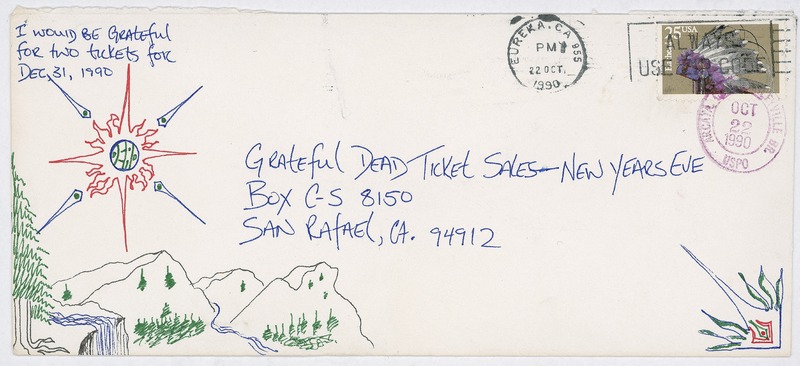 I WOULD BE GRATEFUL
FOR TWO TICKETS FOR
DEC, 31, 1990
EUREKA, CA 955
PM
22 OCT.
1990
ALWAYS
USE ZIP CODE
25 USA
GRATEFUL DEAD TICKET SALES—NEW YEARS EVE
BOX C-S 8150
SAN RAFAEL, CA. 94912
ARCATA
OCT
22
1990
USPO